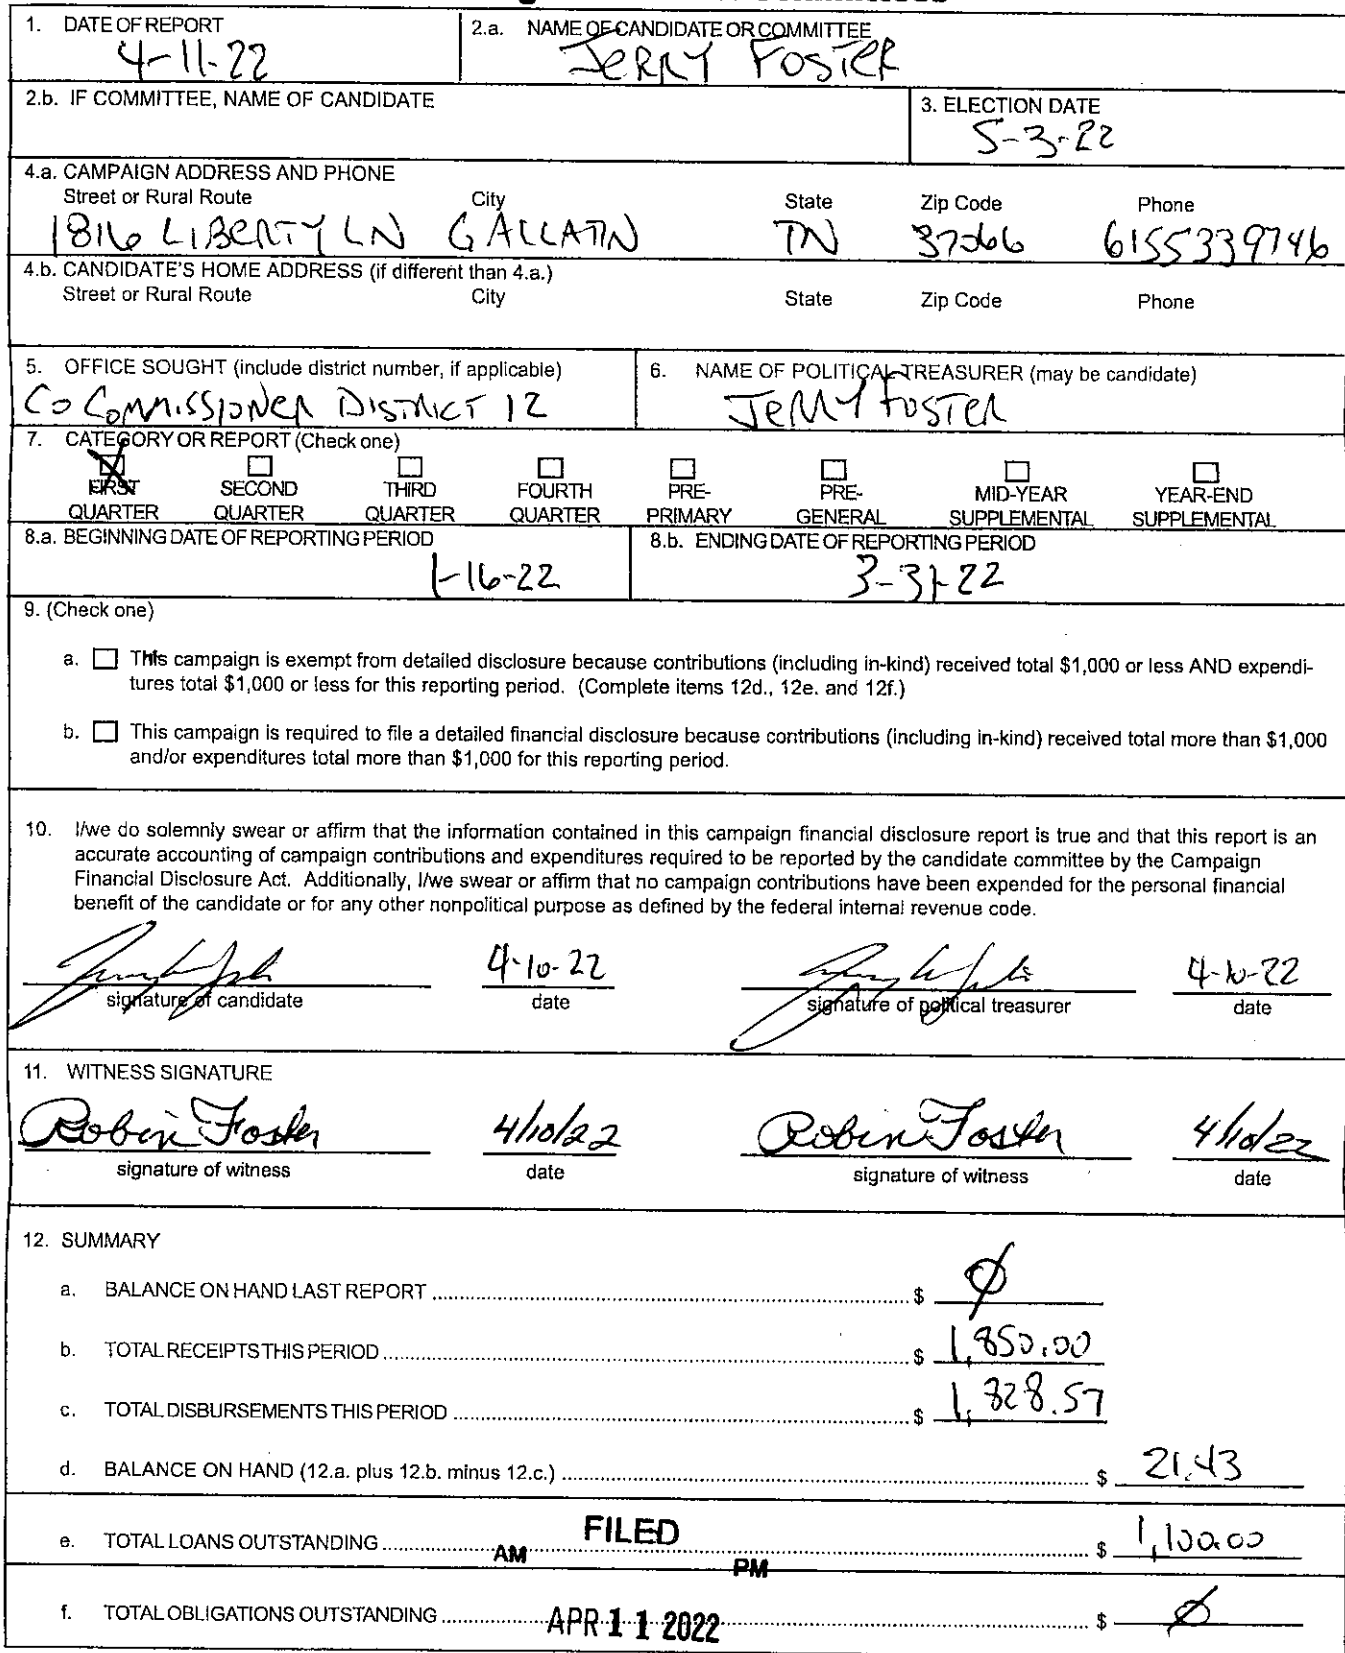 1. DATE OF REPORT
4-11-22
2.a. NAME OF CANDIDATE OR COMMITTEE
JERRY FOSTER
2.b. IF COMMITTEE, NAME OF CANDIDATE
3. ELECTION DATE
5-3-22
4.a. CAMPAIGN ADDRESS AND PHONE
Street or Rural Route City State Zip Code Phone
1816 LIBERTY LN GALLATIN TN 37066 6155339746
4.b. CANDIDATE'S HOME ADDRESS (if different than 4.a.)
Street or Rural Route City State Zip Code Phone
5. OFFICE SOUGHT (include district number, if applicable)
CO COMMISSIONER DISTRICT 12
6. NAME OF POLITICAL TREASURER (may be candidate)
JERRY FOSTER
7. CATEGORY OR REPORT (Check one)
FIRST SECOND THIRD FOURTH PRE- PRE- MID-YEAR YEAR-END
QUARTER QUARTER QUARTER QUARTER PRIMARY GENERAL SUPPLEMENTAL SUPPLEMENTAL
8.a. BEGINNING DATE OF REPORTING PERIOD
1-16-22
8.b. ENDING DATE OF REPORTING PERIOD
3-31-22
9. (Check one)
a. This campaign is exempt from detailed disclosure because contributions (including in-kind) received total $1,000 or less AND expendi-
tures total $1,000 or less for this reporting period. (Complete items 12d., 12e. and 12f.)
b. This campaign is required to file a detailed financial disclosure because contributions (including in-kind) received total more than $1,000
and/or expenditures total more than $1,000 for this reporting period.
10. I/we do solemnly swear or affirm that the information contained in this campaign financial disclosure report is true and that this report is an
accurate accounting of campaign contributions and expenditures required to be reported by the candidate committee by the Campaign
Financial Disclosure Act. Additionally, I/we swear or affirm that no campaign contributions have been expended for the personal financial
benefit of the candidate or for any other nonpolitical purpose as defined by the federal internal revenue code.
4-10-22 4-10-22
signature of candidate date signature of political treasurer date
11. WITNESS SIGNATURE
Robin Foster 4/10/22 Robin Foster 4/10/22
signature of witness date signature of witness date
12. SUMMARY
a. BALANCE ON HAND LAST REPORT $ Ø
b. TOTAL RECEIPTS THIS PERIOD $ 1,850.00
c. TOTAL DISBURSEMENTS THIS PERIOD $ 1,828.57
d. BALANCE ON HAND (12.a. plus 12.b. minus 12.c.) $ 21.43
e. TOTAL LOANS OUTSTANDING $ 1,100.00
FILED
AM PM
f. TOTAL OBLIGATIONS OUTSTANDING $ Ø
APR 11 2022